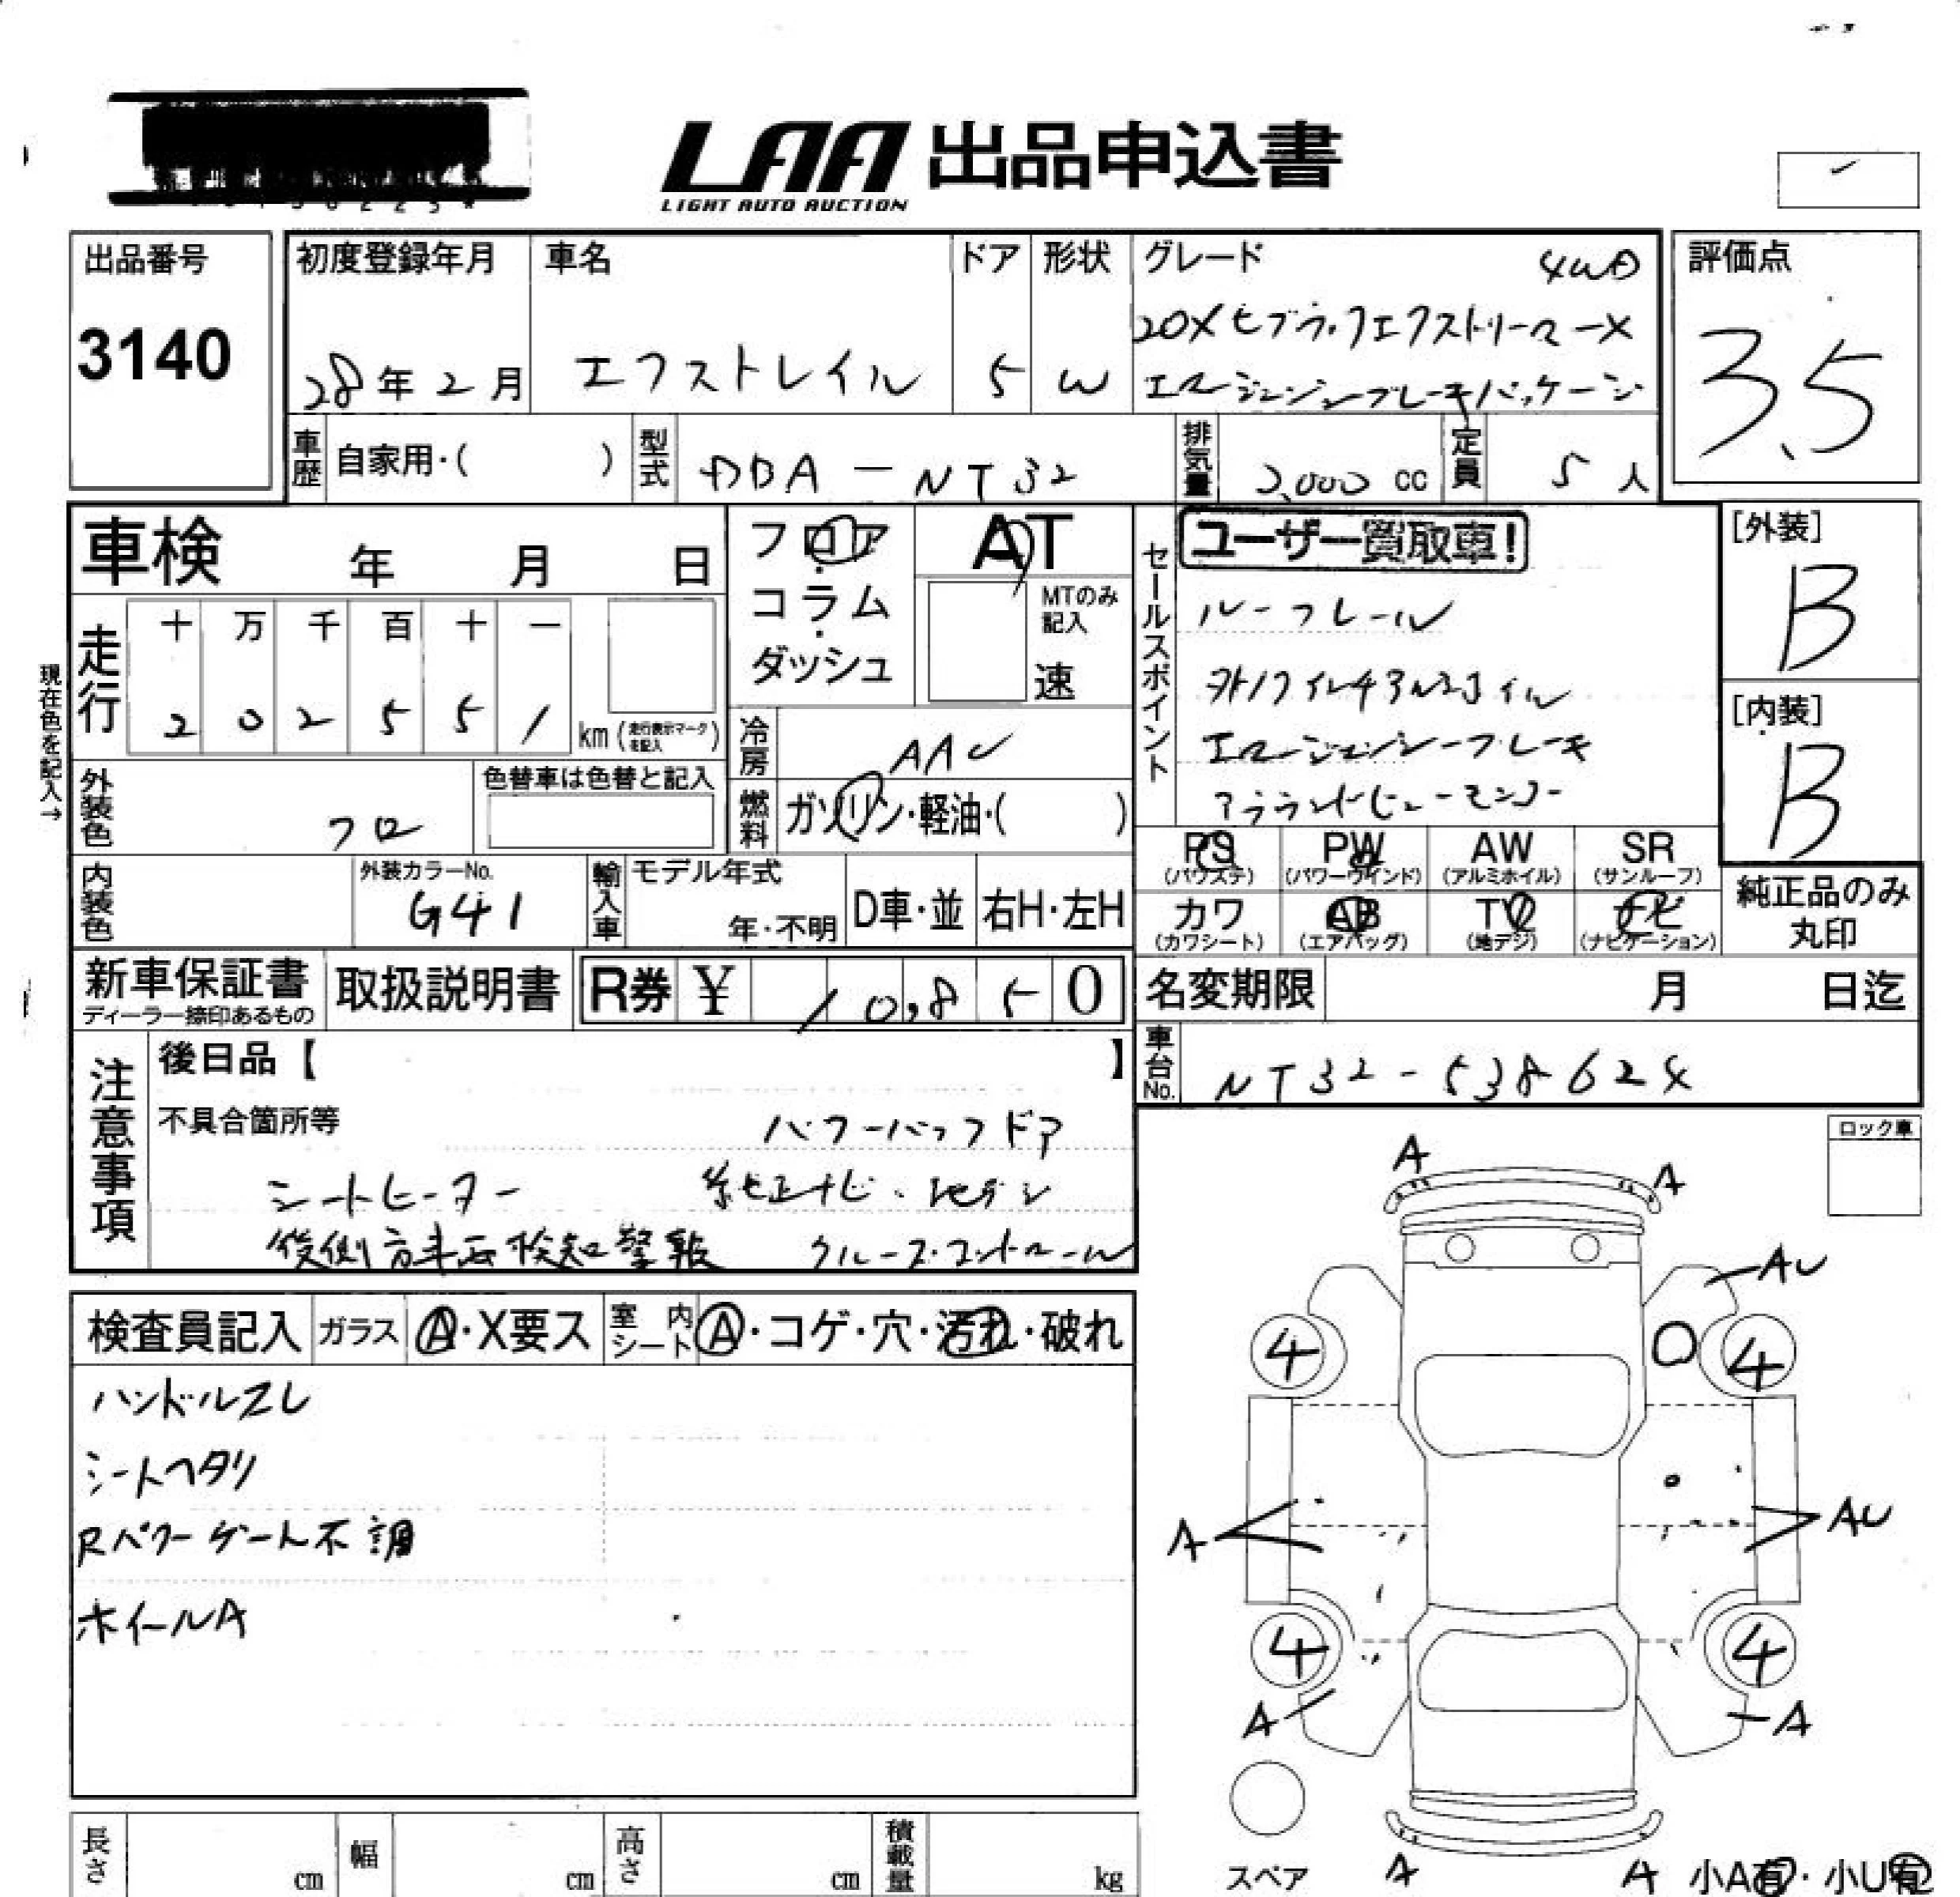 LAA 出品申込書
LIGHT AUTO AUCTION
出品番号
3140
初度登録年月
28年2月
車名
エクストレイル
ドア
5
形状
W
グレード
4WD
20XビブラックエクストリーマーX
エマージェンシーブレーキパッケージ
評価点
3.5
車歴
自家用・( )
型式
DBA-NT32
排気量
2,000 cc
定員
5 人
車検 年 月 日
走行
十 万 千 百 十 一
2 0 2 5 5 1
km (走行表示マークを記入)
現在色を記入→
フロア・コラム・ダッシュ
AT
MTのみ記入
速
冷房
AAC
燃料
ガソリン・軽油・( )
外装色
クロ
色替車は色替と記入
内装色
外装カラーNo.
G41
輸入車
モデル年式
年・不明
D車・並
右H・左H
セールスポイント
ユーザー買取車!
ルーフレール
エマージェンシーブレーキ
アラウンドビューモニター
[外装]
B
[内装]
B
PS (パワステ)
PW (パワーウインド)
AW (アルミホイル)
SR (サンルーフ)
カワ (カワシート)
AB (エアバッグ)
TV (地デジ)
ナビ (ナビゲーション)
純正品のみ丸印
新車保証書
ディーラー捺印あるもの
取扱説明書
R券 ¥ 10,850
名変期限 月 日迄
車台No.
NT32-538624
注意事項
後日品【 】
不具合箇所等
パワーバックドア
シートヒーター
純正ナビ、地デジ
後側方車両検知警報
クルーズコントロール
ロック車
検査員記入
ガラス
A・X要ス
室内シート
A・コゲ・穴・汚れ・破れ
ハンドルスレ
シートヘタリ
Rパワーゲート不調
ホイールA
A
A
AU
4
4
A
AU
4
4
A
A
スペア
A
A
小A有・小U有
長さ cm
幅 cm
高さ cm
積載量 kg